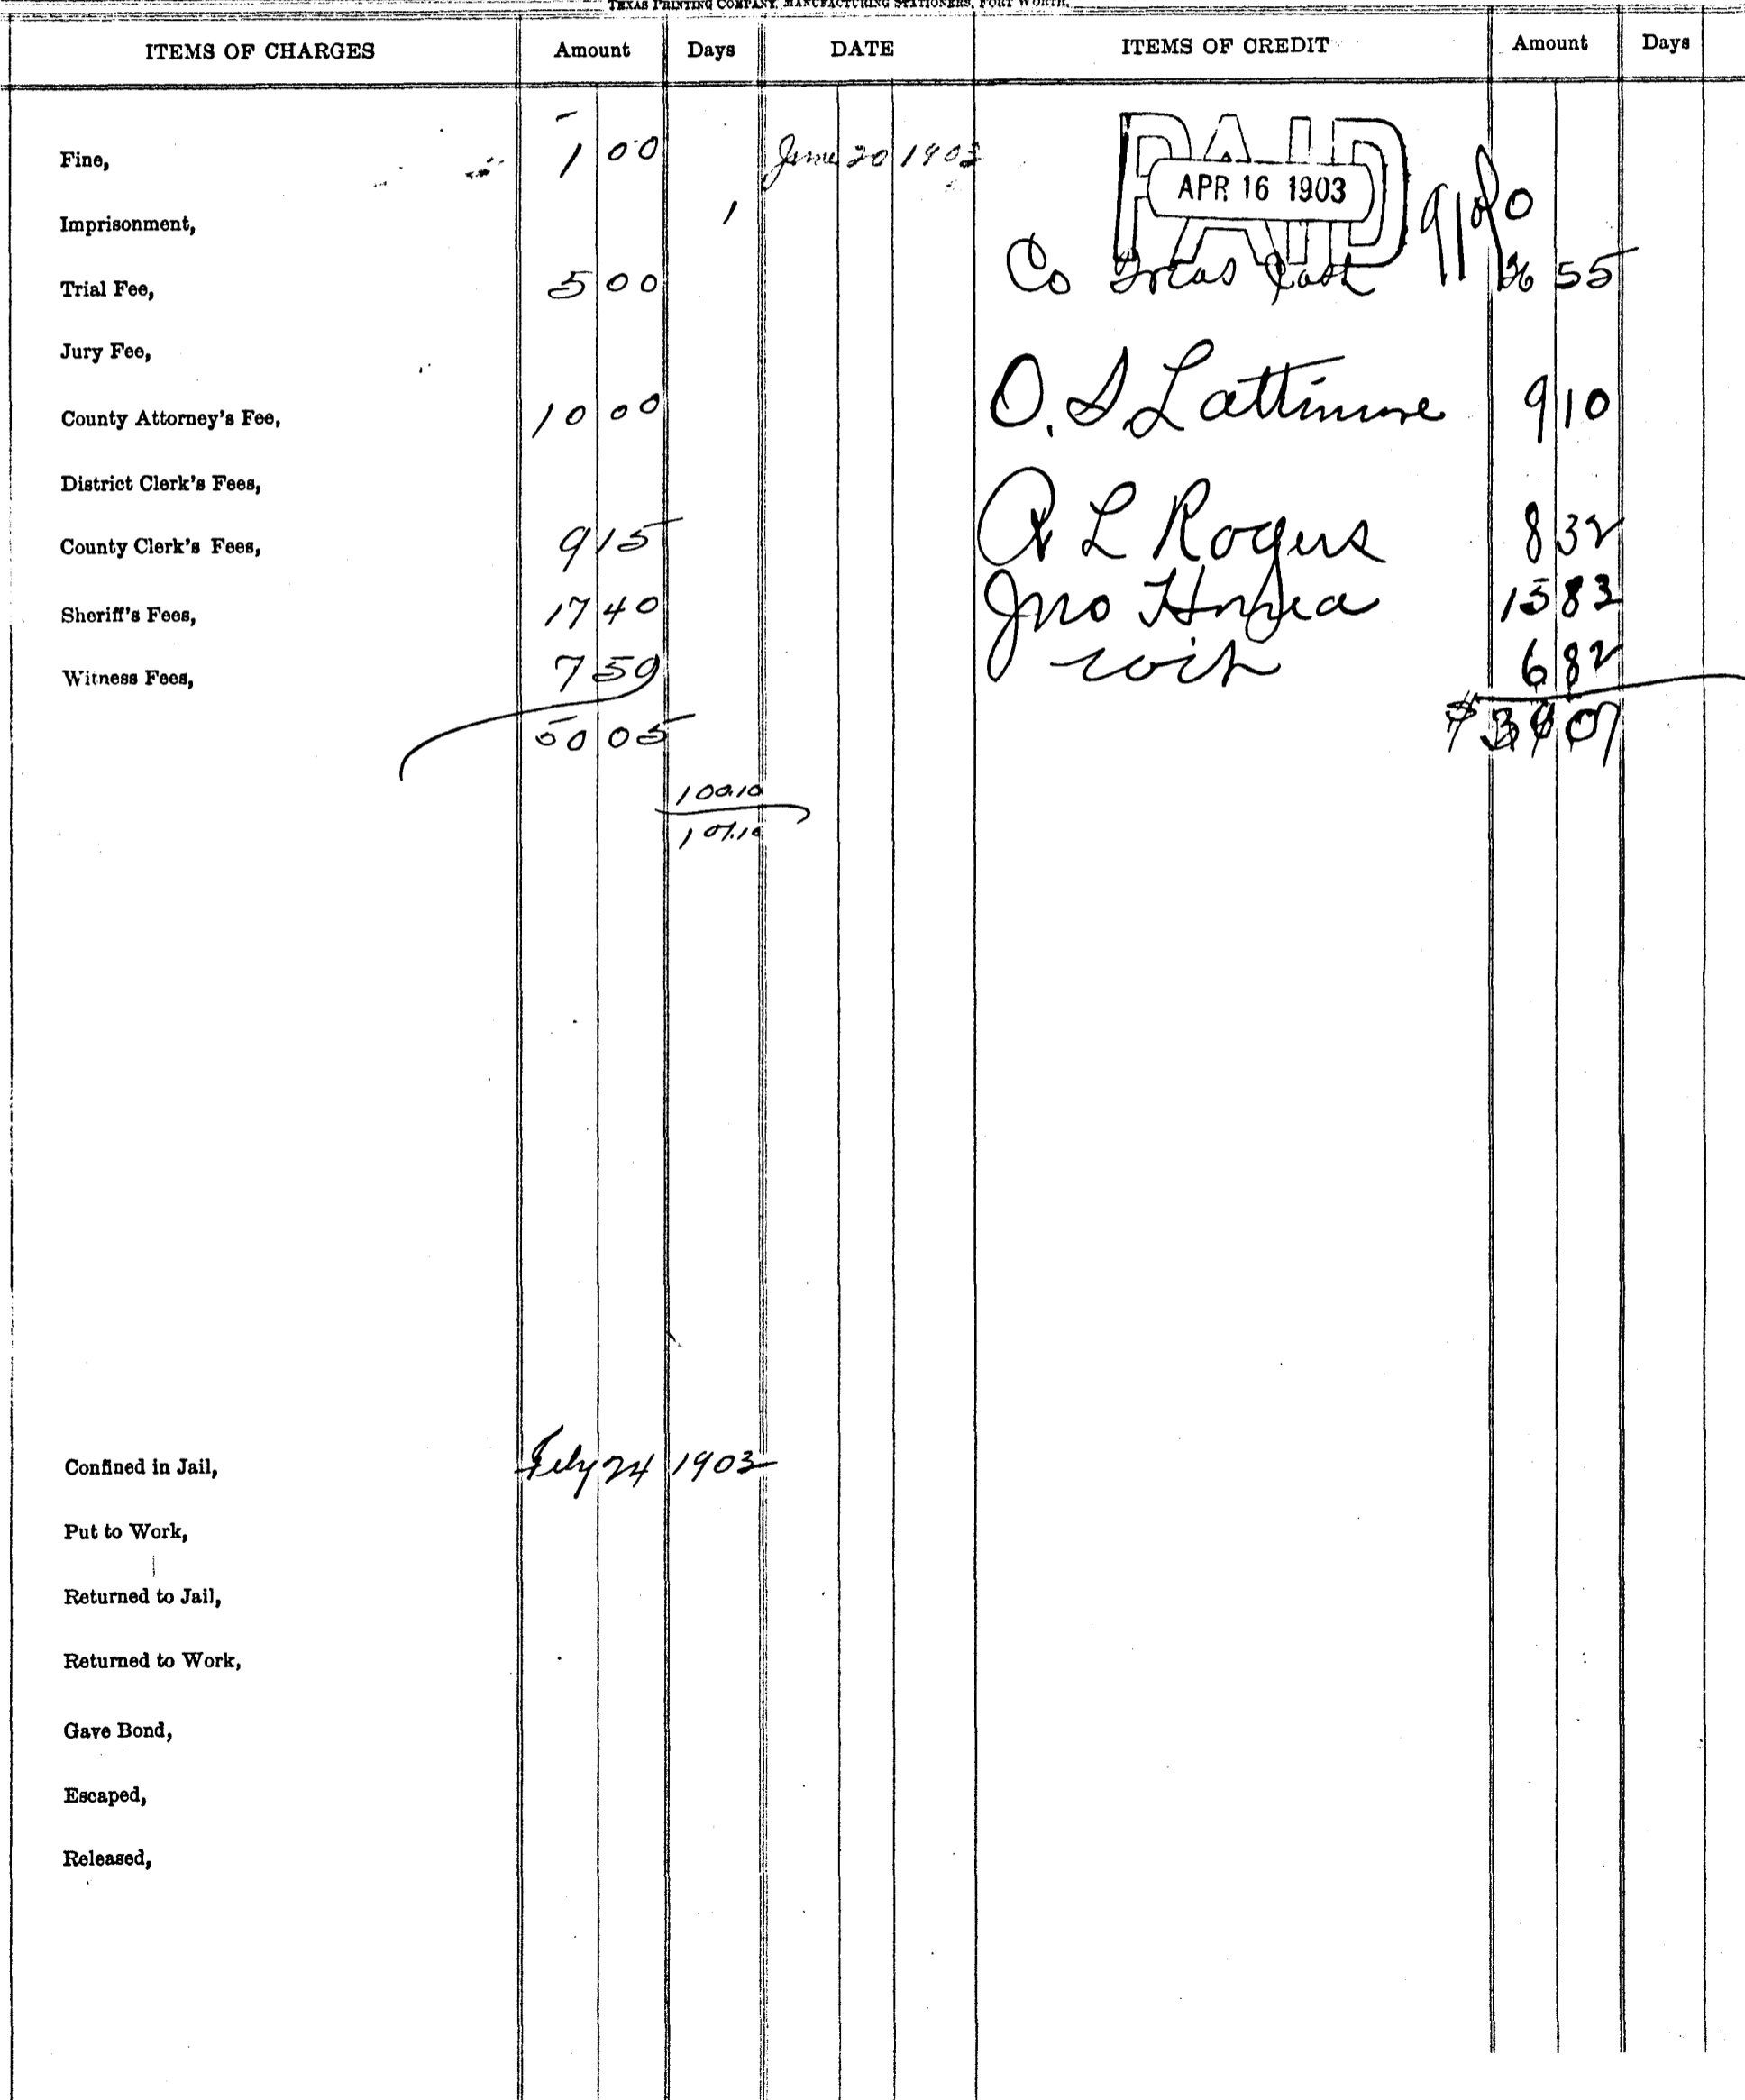 TEXAS PRINTING COMPANY, MANUFACTURING STATIONERS, FORT WORTH.
ITEMS OF CHARGES Amount Days DATE ITEMS OF CREDIT Amount Days
Fine, 1 00 June 20 1903 PAID
APR 16 1903
Imprisonment, 1
Trial Fee, 5 00 Co Treas Cost 55
Jury Fee,
County Attorney's Fee, 10 00 O. S. Lattimore 9 10
District Clerk's Fees,
County Clerk's Fees, 9 15 R L Rogers 8 32
Sheriff's Fees, 17 40 Jno 15 83
Witness Fees, 7 50 wit 6 82
50 05 $ 07
100.10
101.10
Confined in Jail, Feby 24 1903
Put to Work,
Returned to Jail,
Returned to Work,
Gave Bond,
Escaped,
Released,